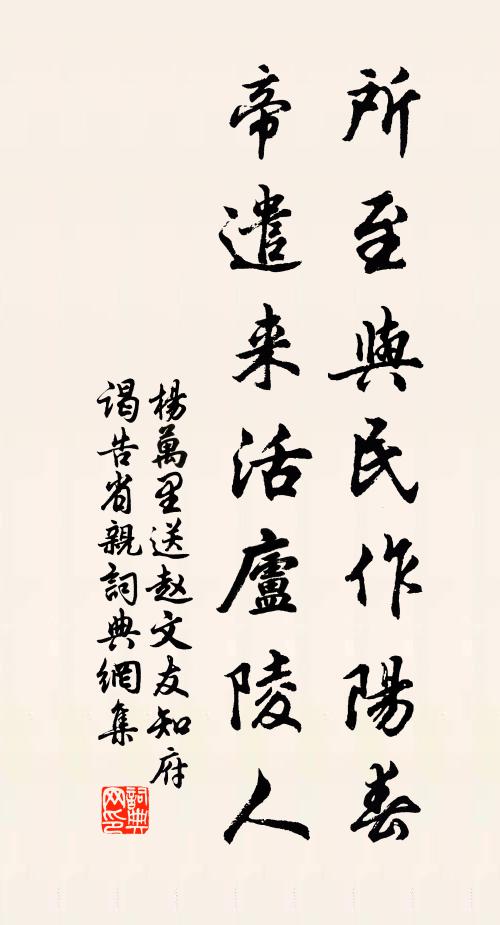 所至與民作陽春
帝遣来活廬陵人
楊萬里送赵文友知府
谒告省親詞典網集
詞典网印